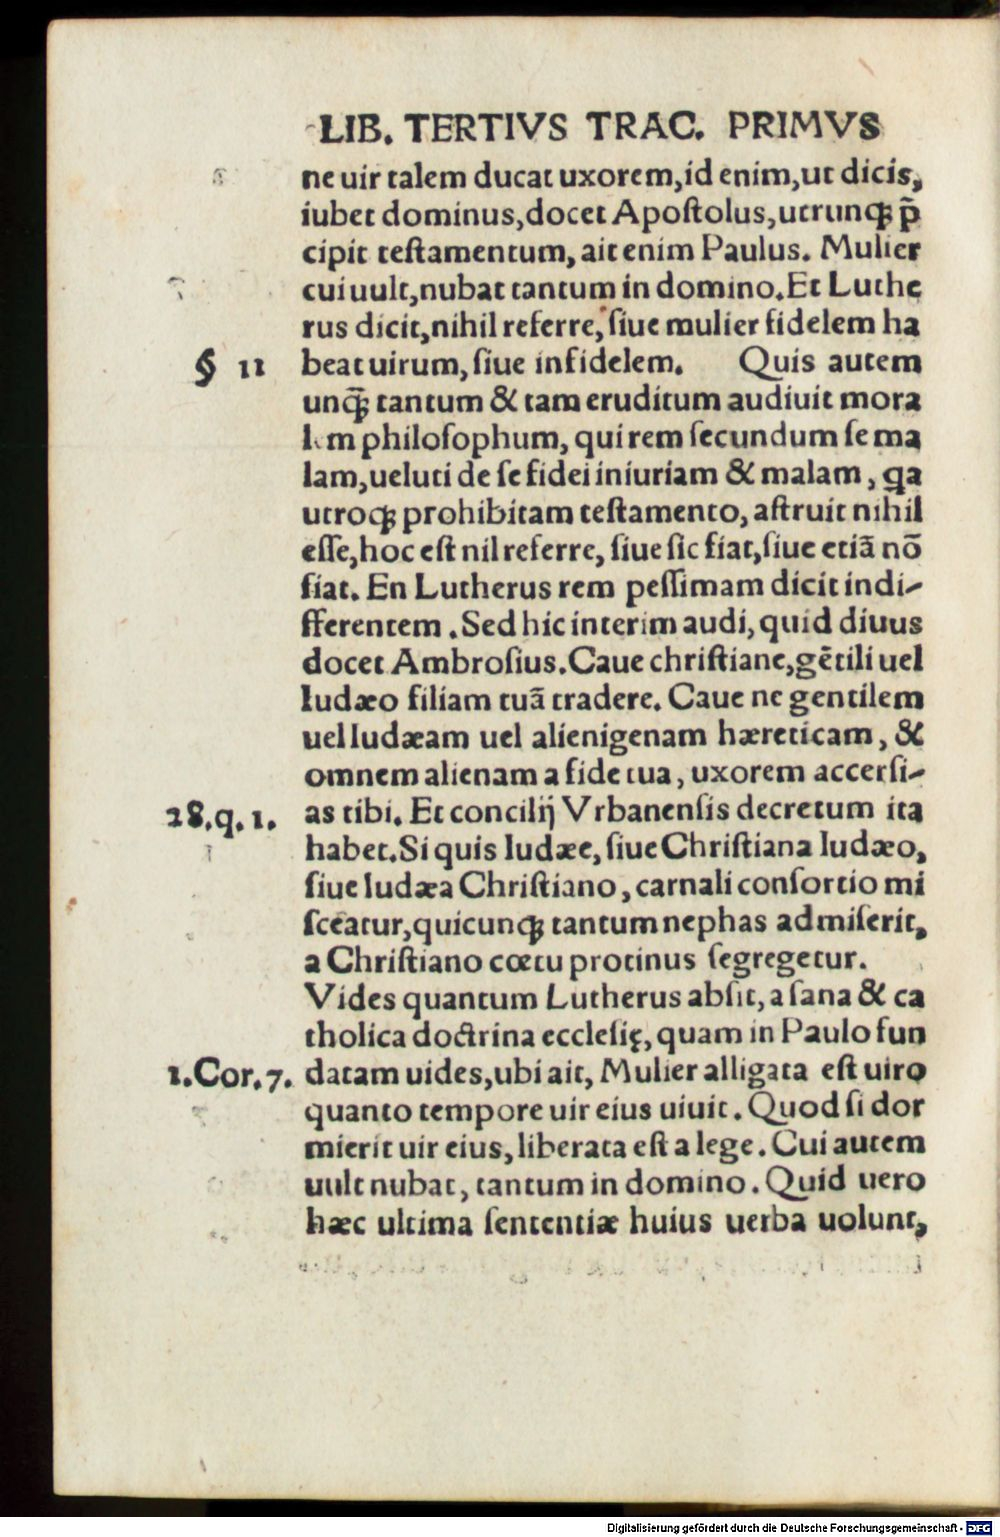 LIB. TERTIVS TRAC. PRIMVS
ne uir talem ducat uxorem, id enim, ut dicis,
iubet dominus, docet Apoſtolus, utrunqꝫ p̃
cipit teſtamentum, ait enim Paulus. Mulier
cui uult, nubat tantum in domino. Et Luthe
rus dicit, nihil referre, ſiue mulier fidelem ha
§ 11 beat uirum, ſiue infidelem. Quis autem
unq̃ꝫ tantum & tam eruditum audiuit mora
lem philoſophum, qui rem ſecundum ſe ma
lam, ueluti de ſe fidei iniuriam & malam, qa
utroqꝫ prohibitam teſtamento, aſtruit nihil
eſſe, hoc eſt nil referre, ſiue ſic fiat, ſiue etiã nõ
fiat. En Lutherus rem peſſimam dicit indi-
fferentem. Sed hic interim audi, quid diuus
docet Ambroſius. Caue chriſtiane, gẽtili uel
Iudæo filiam tuã tradere. Caue ne gentilem
uel Iudæam uel alienigenam hæreticam, &
omnem alienam a fide tua, uxorem accerſi-
28. q. 1. as tibi. Et concilij Vrbanenſis decretum ita
habet. Si quis Iudææ, ſiue Chriſtiana Iudæo,
ſiue Iudæa Chriſtiano, carnali conſortio mi
ſceatur, quicunqꝫ tantum nephas admiſerit,
a Chriſtiano cœtu protinus ſegregetur.
Vides quantum Lutherus abſit, a ſana & ca
tholica doctrina eccleſię, quam in Paulo fun
1. Cor. 7. datam uides, ubi ait, Mulier alligata eſt uiro
quanto tempore uir eius uiuit. Quod ſi dor
mierit uir eius, liberata eſt a lege. Cui autem
uult nubat, tantum in domino. Quid uero
hæc ultima ſententiæ huius uerba uolunt,
Digitalisierung gefördert durch die Deutsche Forschungsgemeinschaft - DFG